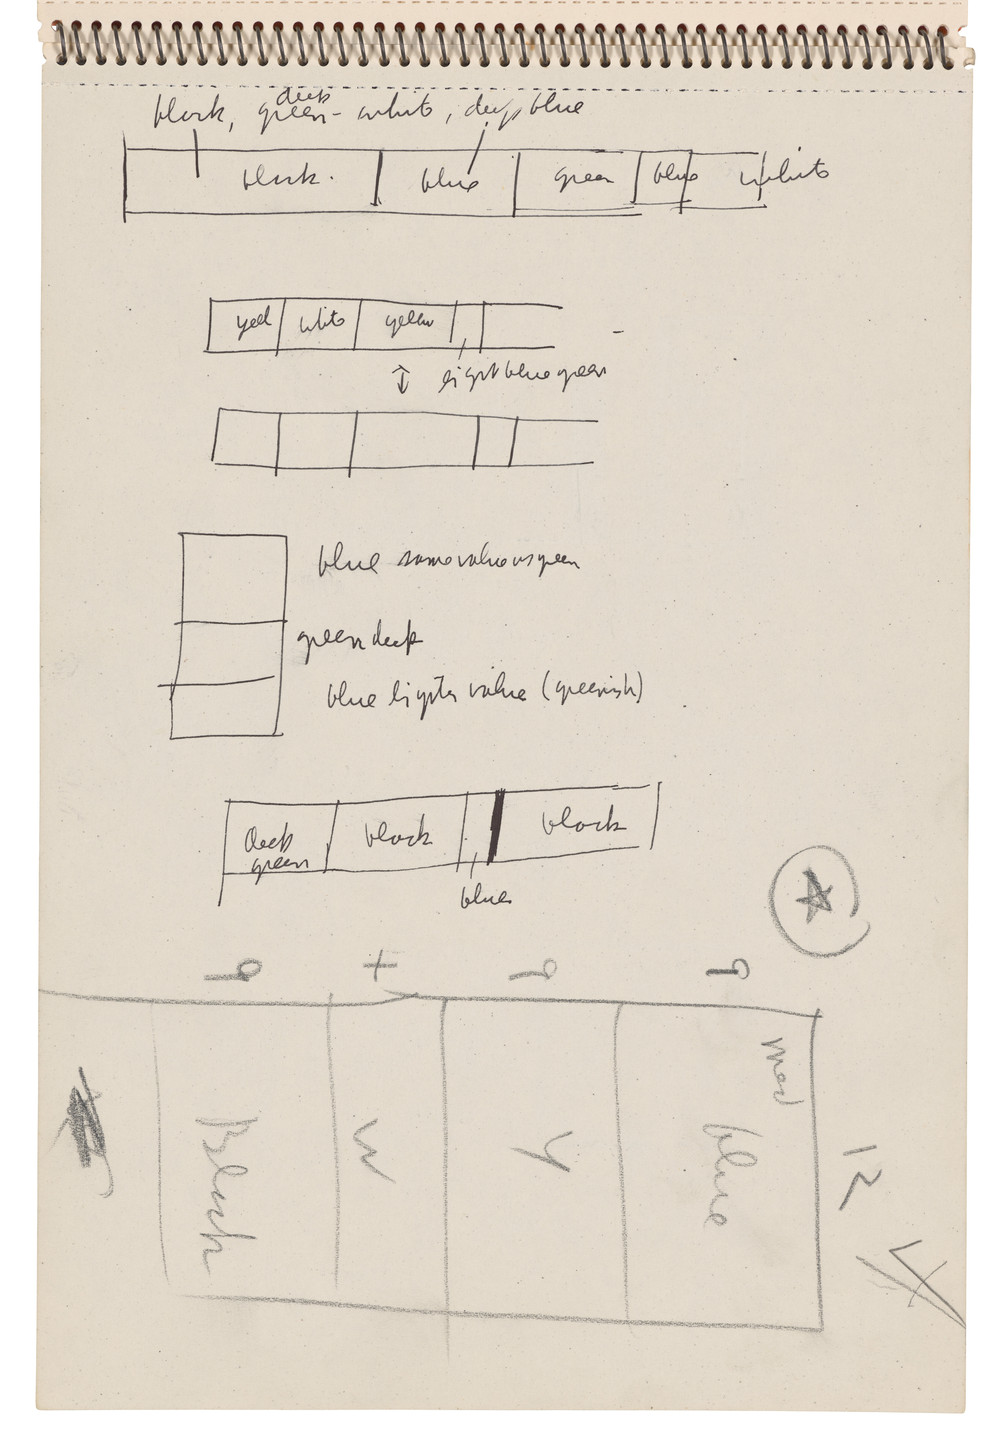 deep
black, green - white, deep blue
black. blue green blue white
yell white yellow
light blue green
blue same value as green
green deep
blue lighter value (greenish)
deep green black black
blue
9 + 9 9
med
Black W Y blue
12